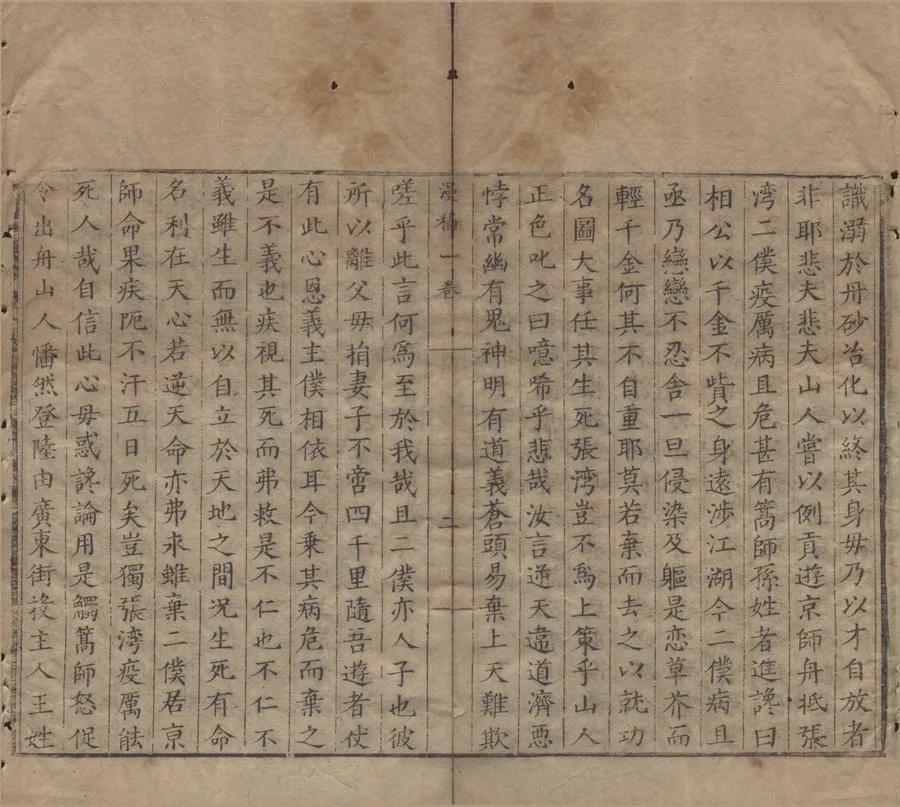 識溺於丹砂冶化以終其身毋乃以才自放者
非耶悲夫悲夫山人嘗以例貢遊京師舟抵張
湾二僕疫厲病且危甚有篙師孫姓者進讒曰
相公以千金不貲之身遠涉江湖今二僕病且
亟乃戀戀不忍舍一旦侵染及軀是恋草芥而
輕千金何其不自重耶莫若棄而去之以就功
名圖大事任其生死張湾豈不爲上策乎山人
正色叱之曰噫嘻乎悲哉汝言逆天違道濟惡
悖常幽有鬼神明有道義蒼頭易棄上天難欺
漫稿一卷 二
嗟乎此言何爲至於我哉且二僕亦人子也彼
所以離父毋捐妻子不啻四千里隨吾遊者仗
有此心恩義主僕相依耳今乗其病危而棄之
是不義也疾視其死而弗救是不仁也不仁不
義雖生而無以自立於天地之間况生死有命
名利在天心若逆天命亦弗來雖棄二僕居京
師命果疾阨不汗五日死矣豈獨張湾疫厲能
死人哉自信此心毋惑讒論用是觸篙師怒促
令出舟山人幡然登陸由廣東街投主人王姓